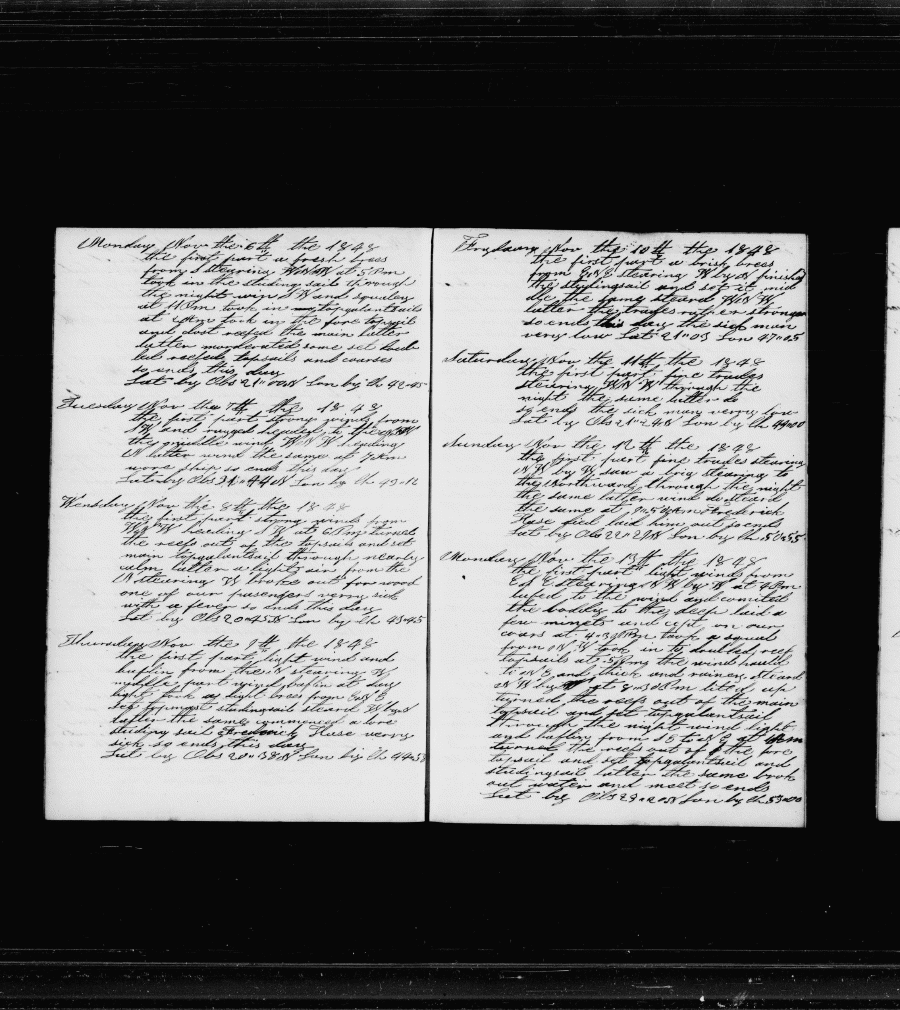 Monday Nov the 6th the 1848
the first part a fresh brees
from S stearing WNW at 5 Pm
took in the studing sail through
the night win S W and squaley
at 11 Pm took in topgalantsails
at 4 Am took in the fore topsail
and dool reefed the main latter
latter moderated some set doub
bul reefed topsails and courses
so ends this day
Lat by Obs 21"00 N Lon by Ch 42-45
Tuesday Nov the 7th the 1848
the first part strong winds from
and ruged headed to the
the middle wind W N W heading
N latter wind the same at
wore ship so ends this day
Lat by Obs 21"44 N Lon by Ch 43"12
Wensday Nov the 8th the 1848
the first part strong winds from
W N W heading S W at 6 Pm turned
the reefs out of the topsails and set
main topgalantsail through nearly
calm latter a light air from the
N stearing W broke out for wood
one of our pasengers verry sick
with a fever so ends this day
Lat by Obs 20"45 N Lon by Ch 43"45
Thursday Nov the 9th the 1848
the first part light wind and
baflin from the N stearing W
middle part wind baflin at day
light took a light brees from E N E
set topmast studingsail steard W by N
latter the same commenced a lore
studing sail Frederick Hase verry
sick so ends this day
Lat by Obs 20"38 N Lon by Ch 44"53
Fryday Nov the 10th the 1848
the first part a brisk brees
from E N E stearing W by N finished
the studingsail and sot it mid
dle the same steard W N W
latter the trades rather stronger
so ends this day the sick man
very low Lat 21"03 Lon 47"05
Saturday Nov the 11th the 1848
the first part fine trades
stearing W N W through the
night the same latter do
so ends the sick man verry low
Lat by Obs 21"24 N Lon by Ch 49"00
Sunday Nov the 12th the 1848
the first part fine trades stearing
N W by W saw a brig stearing to
the northward through the night
the same latter wind do steard
the same at Frederick
Hase died laid him out so ends
Lat by Obs 22"22 N Lon by Ch 50"55
Monday Nov the 13th the 1848
the first part light wind from
E S E stearing N W by W at 4 Pm
lufed to the wind and comited
the boddy to the deep laid a
few minets and cept on our
cours at 4"30 Pm took a squal
from N W took in to doubled reef
topsails at 5 Pm the wind hauld
to N E and thick and rainey steard
N W by W at 8"30 Pm lited up
turned the reefs out of the main
topsail and set topgalantsail
through the night wind light
and bafling from S E to N E at
turned the reefs out of the fore
topsail and set topgalantsail and
studingsail latter the same broke
out water and meet so ends
Lat by Obs 23"12 N Lon by Ch 53"00